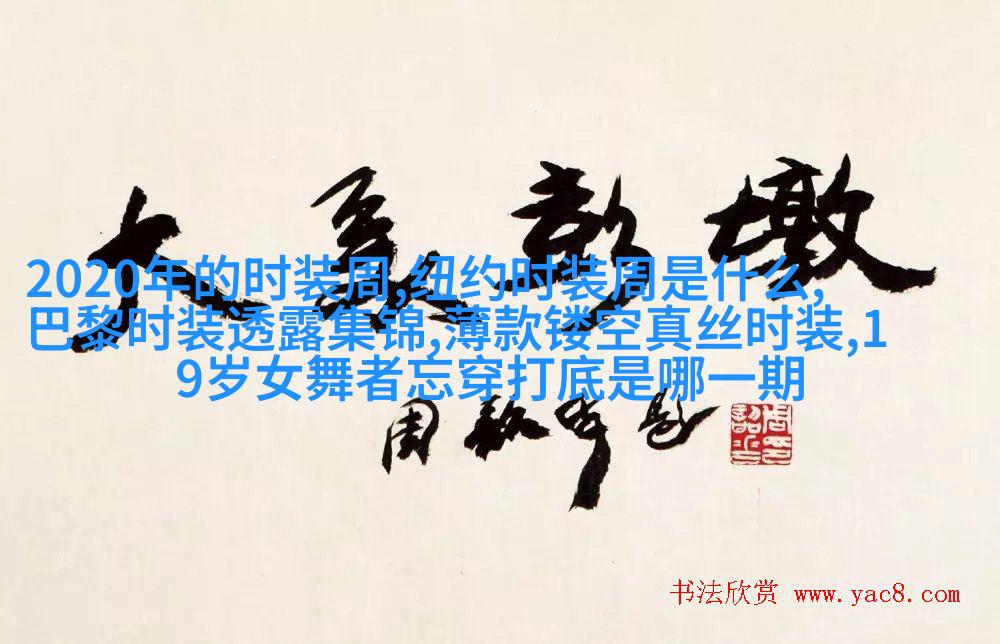 大美彭墩
2020年的时装周,纽约时装周是什么,
巴黎时装透露集锦,薄款镂空真丝时装,1
9岁女舞者忘穿打底是哪一期
书法欣赏 www.yac8.com